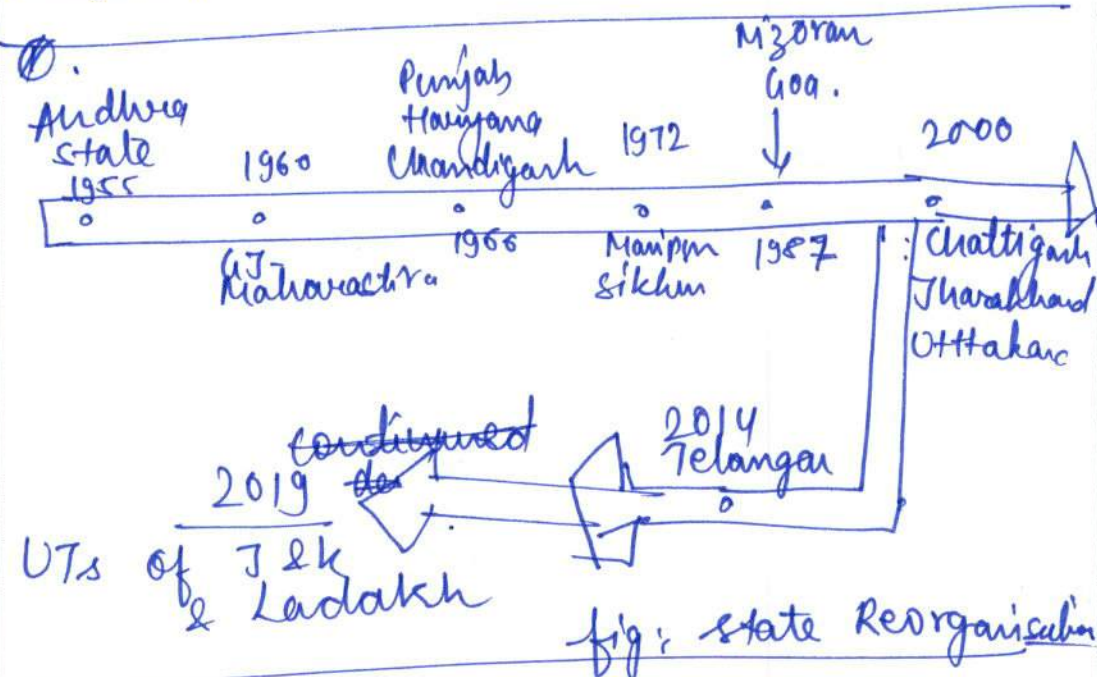 Andhra
state
1955
1960
GJ
Maharastra
Punjab
Haryana
Chandigarh
1966
1972
Manipur
Sikkim
Mizoram
Goa.
1987
2000
Chattigarh
Jharakhand
Uttakanc
2014
Telangan
2019
UTs of J&K
& Ladakh
fig: state Reorganisation